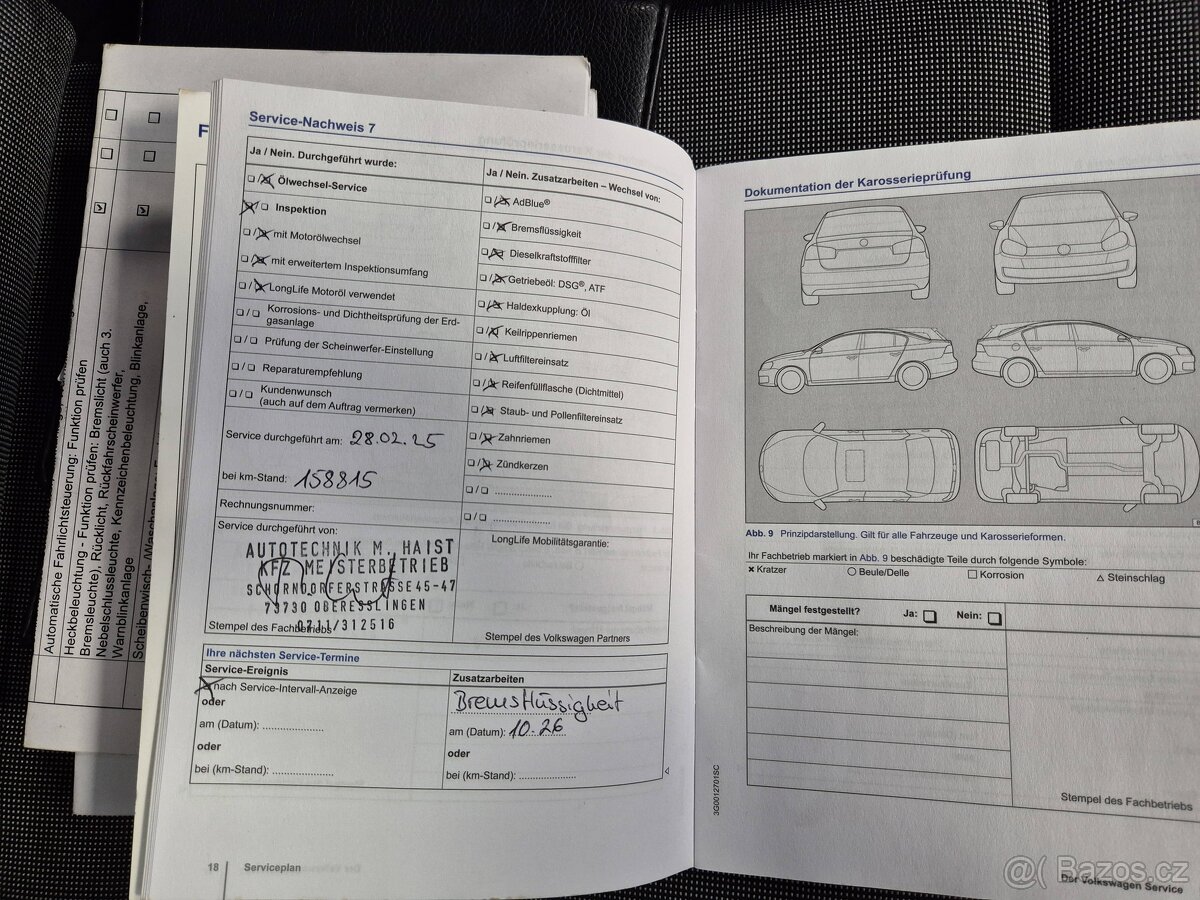 Automatische Fahrlichtsteuerung: Funktion prüfen
Heckbeleuchtung - Funktion prüfen: Bremslicht (auch 3.
Bremsleuchte), Rücklicht, Rückfahrscheinwerfer,
Nebelschlussleuchte, Kennzeichenbeleuchtung, Blinkanlage,
Warnblinkanlage
F
Service-Nachweis 7
Ja / Nein. Durchgeführt wurde:
Ölwechsel-Service
Inspektion
mit Motorölwechsel
mit erweitertem Inspektionsumfang
LongLife Motoröl verwendet
Korrosions- und Dichtheitsprüfung der Erd-
gasanlage
Prüfung der Scheinwerfer-Einstellung
Reparaturempfehlung
Kundenwunsch
(auch auf dem Auftrag vermerken)
Service durchgeführt am: 28.02.25
bei km-Stand: 158815
Rechnungsnummer:
Service durchgeführt von:
AUTOTECHNIK M. HAIST
KFZ MEISTERBETRIEB
SCHORNDORFERSTRASSE 45-47
73730 OBERESSLINGEN
0711/312516
Stempel des Fachbetriebs
Ja / Nein. Zusatzarbeiten – Wechsel von:
AdBlue®
Bremsflüssigkeit
Dieselkraftstofffilter
Getriebeöl: DSG®, ATF
Haldexkupplung: Öl
Keilrippenriemen
Luftfiltereinsatz
Reifenfüllflasche (Dichtmittel)
Staub- und Pollenfiltereinsatz
Zahnriemen
Zündkerzen
LongLife Mobilitätsgarantie:
Stempel des Volkswagen Partners
Ihre nächsten Service-Termine
Service-Ereignis
nach Service-Intervall-Anzeige
oder
am (Datum):
oder
bei (km-Stand):
Zusatzarbeiten
Bremsflüssigkeit
am (Datum): 10.26
oder
bei (km-Stand):
18 Serviceplan
Dokumentation der Karosserieprüfung
Abb. 9 Prinzipdarstellung. Gilt für alle Fahrzeuge und Karosserieformen.
Ihr Fachbetrieb markiert in Abb. 9 beschädigte Teile durch folgende Symbole:
× Kratzer ○ Beule/Delle □ Korrosion △ Steinschlag
Mängel festgestellt? Ja: Nein:
Beschreibung der Mängel:
Stempel des Fachbetriebs
3G0012701SC
Der Volkswagen Service
Bazos.cz